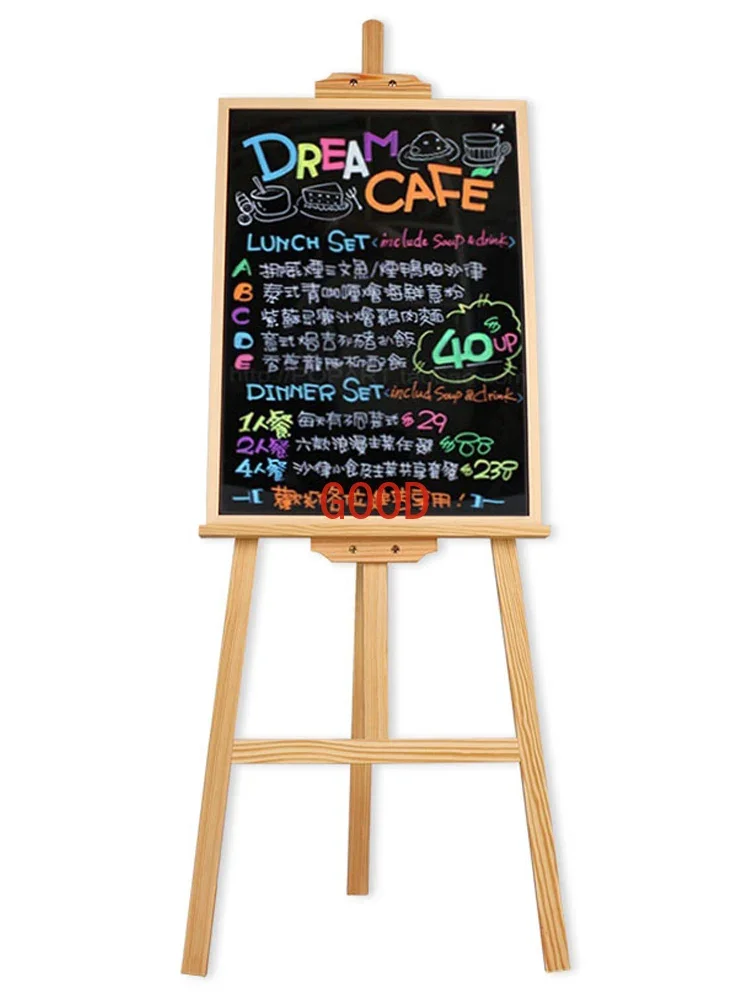 DREAM
CAFÉ
LUNCH SET <include Soup & drink>
A 挪威煙三文魚/煙鴨胸沙律
B 泰式青咖喱燴海鮮意粉
C 紫蘇汁燴雞肉麵
D 意式焗吉列豬扒飯
E 飯
$40 UP
DINNER SET <includ Soup & drink>
1人餐 每天有不同款式 $29
2人餐 六款浪漫主菜任選
4人餐 沙律小食及主菜共享套餐 $238
歡迎各位 享用！
GOOD